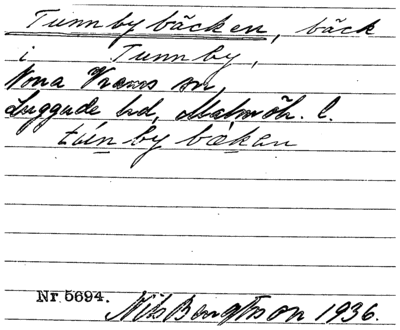 Tunnbybäcken, bäck
i Tunnby,
Norra Vrams sn,
Luggude hd, Malmöh. l.
túnbybækan
Nr 5694. Nils Bengtsson 1936.